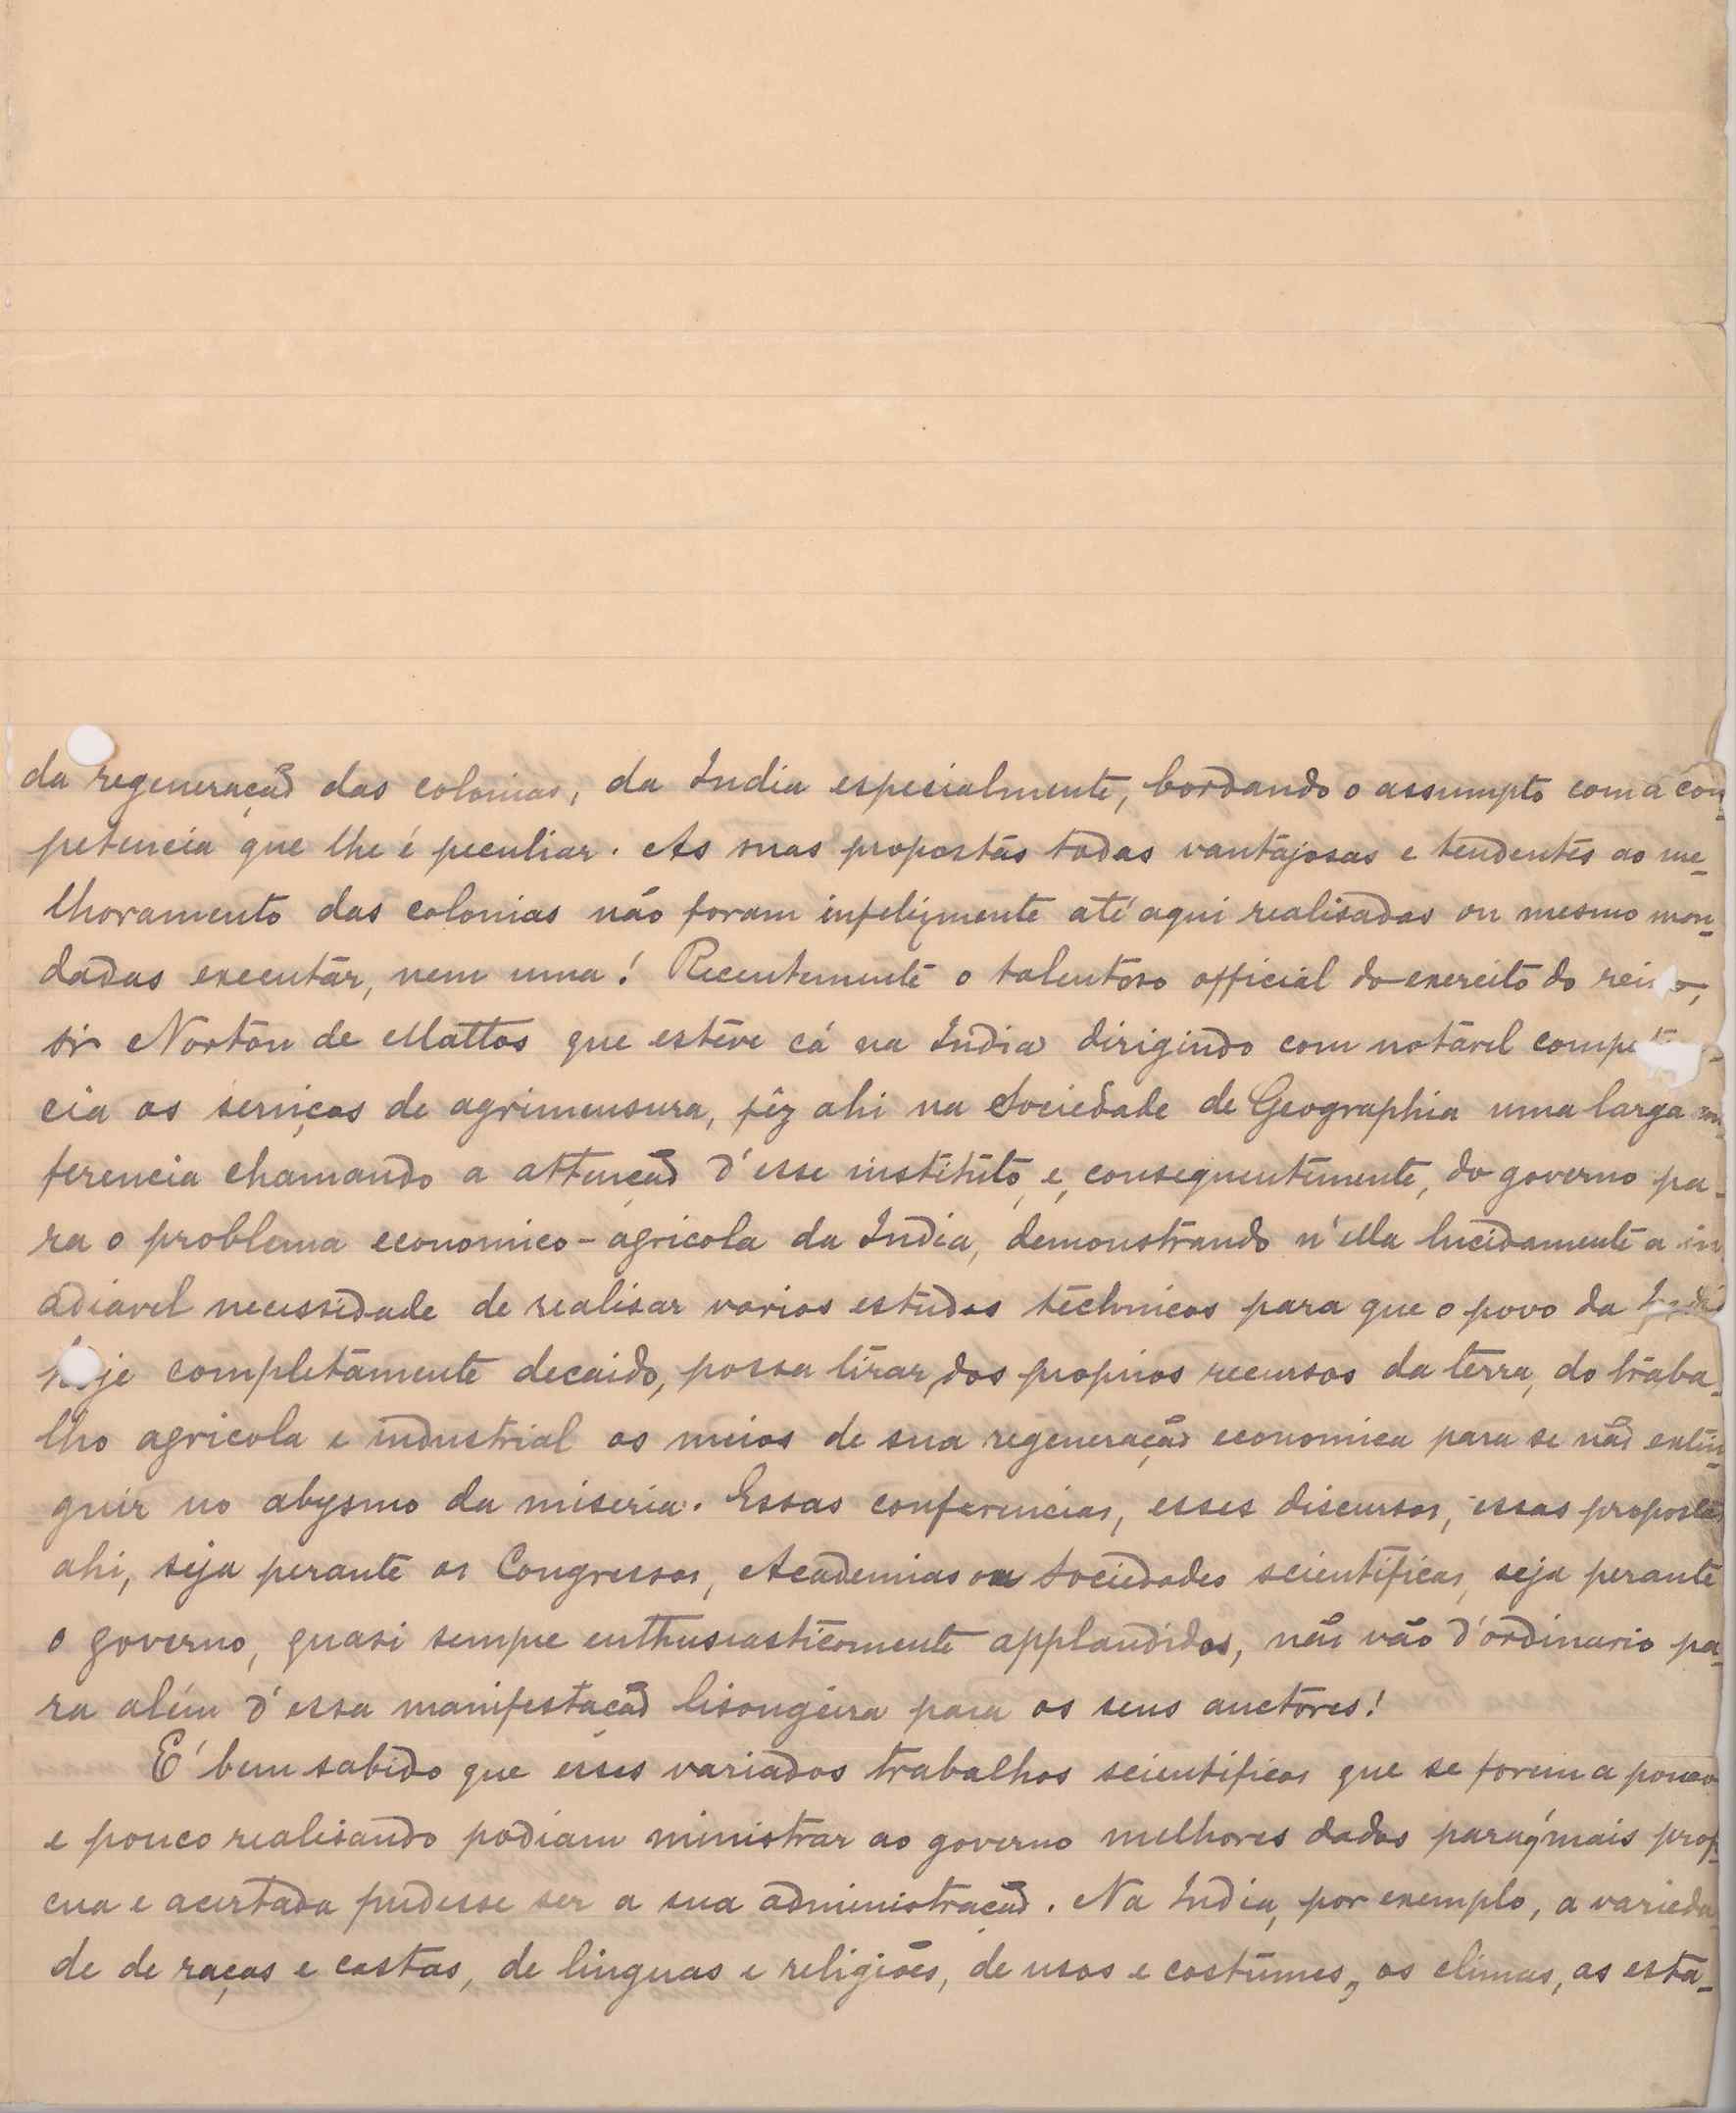 da regeneração das colonias, da India espesialmente, bordando o assumpto com a com-
petencia que lhe é peculiar. As suas propostas todas vantajosas e tendentes ao me-
lhoramento das colonias não foram infelizmente até aqui realisadas ou mesmo man-
dadas executar, nem uma! Recentemente o talentoso official do exercito do reino,
sr Norton de Mattos que esteve cá na India dirigindo com notavel competen-
cia os serviços de agrimensura, fêz ahi na Sociedade de Geographia uma larga con-
ferencia chamando a attenção d'esse instituto, e, consequentemente, do governo pa-
ra o problema economico-agricola da India, demonstrando n'ella lucidamente a in
adiavel necessidade de realisar varios estudos technicos para que o povo da India
hoje completamente decaido, possa tirar, dos proprios recursos da terra, do traba-
lho agricola e industrial os meios de sua regeneração economica para se não extin-
guir no abysmo da miseria. Essas conferencias, esses discursos, essas propostas
ahi, seja perante os Congressos, Academias ou Sociedades scientificas, seja perante
o governo, quasi sempre enthusiasticamente applaudidos, não vão d'ordinario pa-
ra além d'essa manifestação lisongeira para os seus auctores!
É bem sabido que esses variados trabalhos scientificos que se forem a pouco
e pouco realisando podiam ministrar ao governo melhores dados para q' mais prof-
cua e acertada pudesse ser a sua administração. Na India, por exemplo, a varieda
de de raças e castas, de linguas e religiões, de usos e costumes, os climas, as esta-